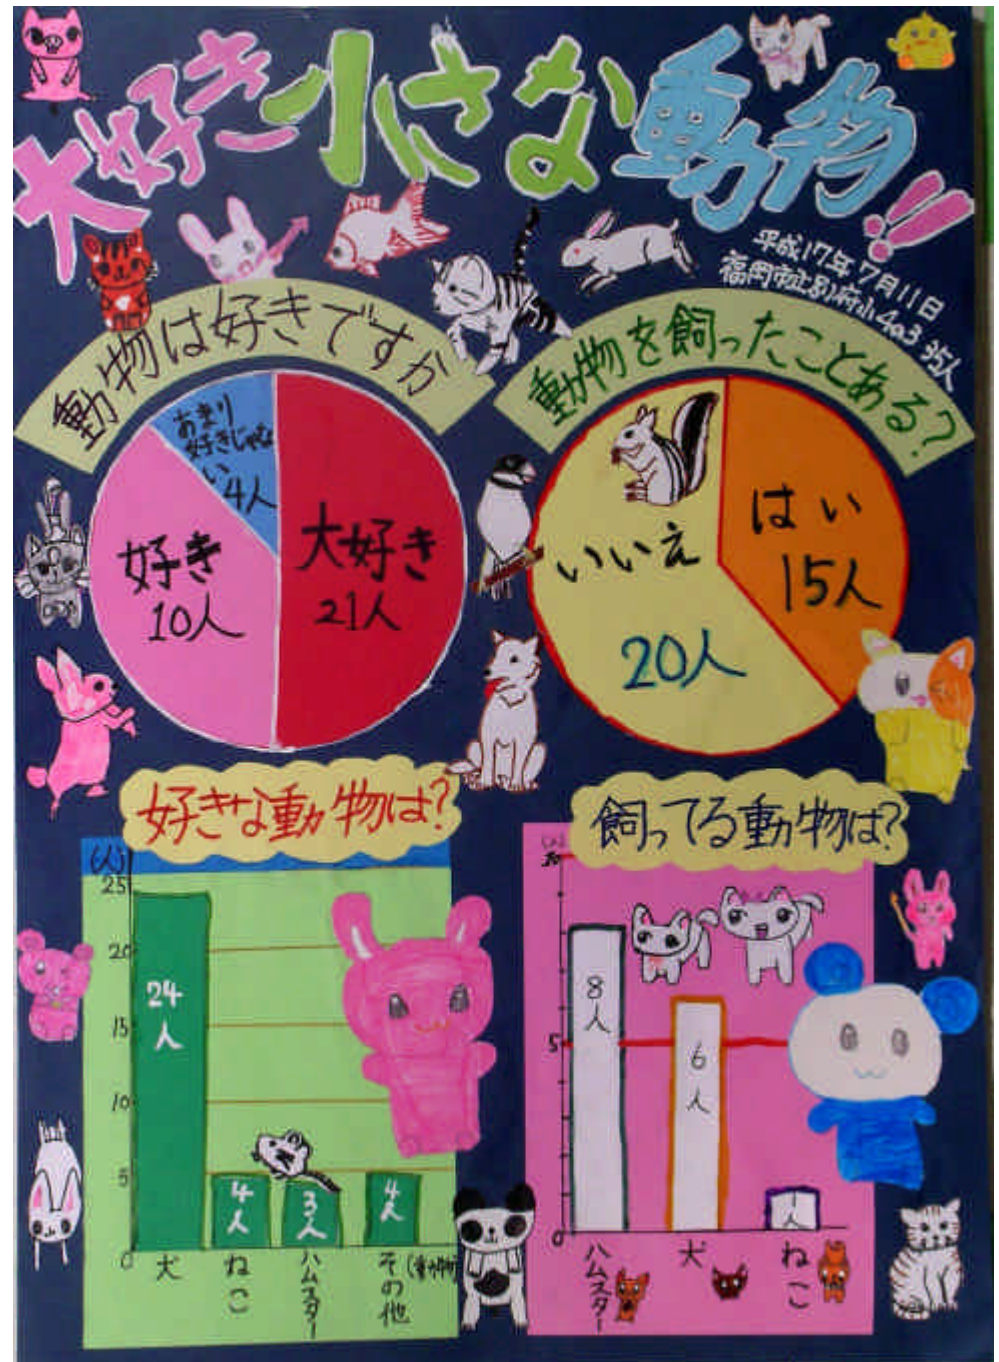 大好き小さな動物!!
平成17年7月11日
福岡市立別府小4の3 35人
動物は好きですか
あまり
好きじゃな
い
4人
好き
10人
大好き
21人
動物を飼ったことある?
はい
15人
いいえ
20人
好きな動物は?
(人)
25
20
15
10
5
0
24
人
4
人
3
人
4
人
犬
ねこ
ハムスター
その他
(動物)
飼ってる動物は?
(人)
10
5
0
8
人
6
人
1
人
ハムスター
犬
ねこ